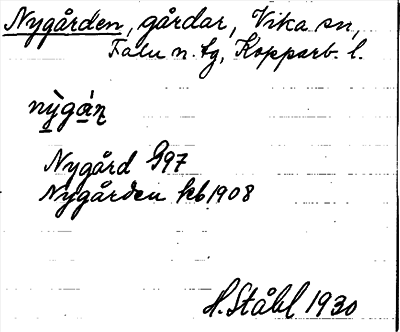 Nygården, gårdar, Vika sn,
Falu n. tg, Kopparb. l.
nỳgàɳ
Nygård G97
Nygården kb 1908
H. Ståhl 1930